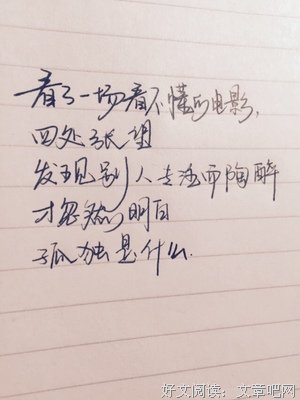 看了一场看不懂的电影,
四处张望
发现别人专注而陶醉
才忽然明白
孤独是什么.
好文阅读：文章吧网